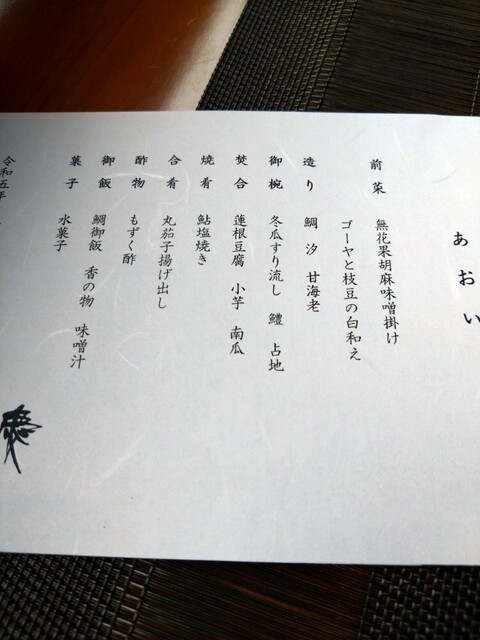 あおい
前菜 無花果胡麻味噌掛け
ゴーヤと枝豆の白和え
造り 鯛 汐 甘海老
御椀 冬瓜すり流し 鱧 占地
焚合 蓮根豆腐 小芋 南瓜
焼肴 鮎塩焼き
合肴 丸茄子揚げ出し
酢物 もずく酢
御飯 鯛御飯 香の物 味噌汁
菓子 水菓子
令和五年